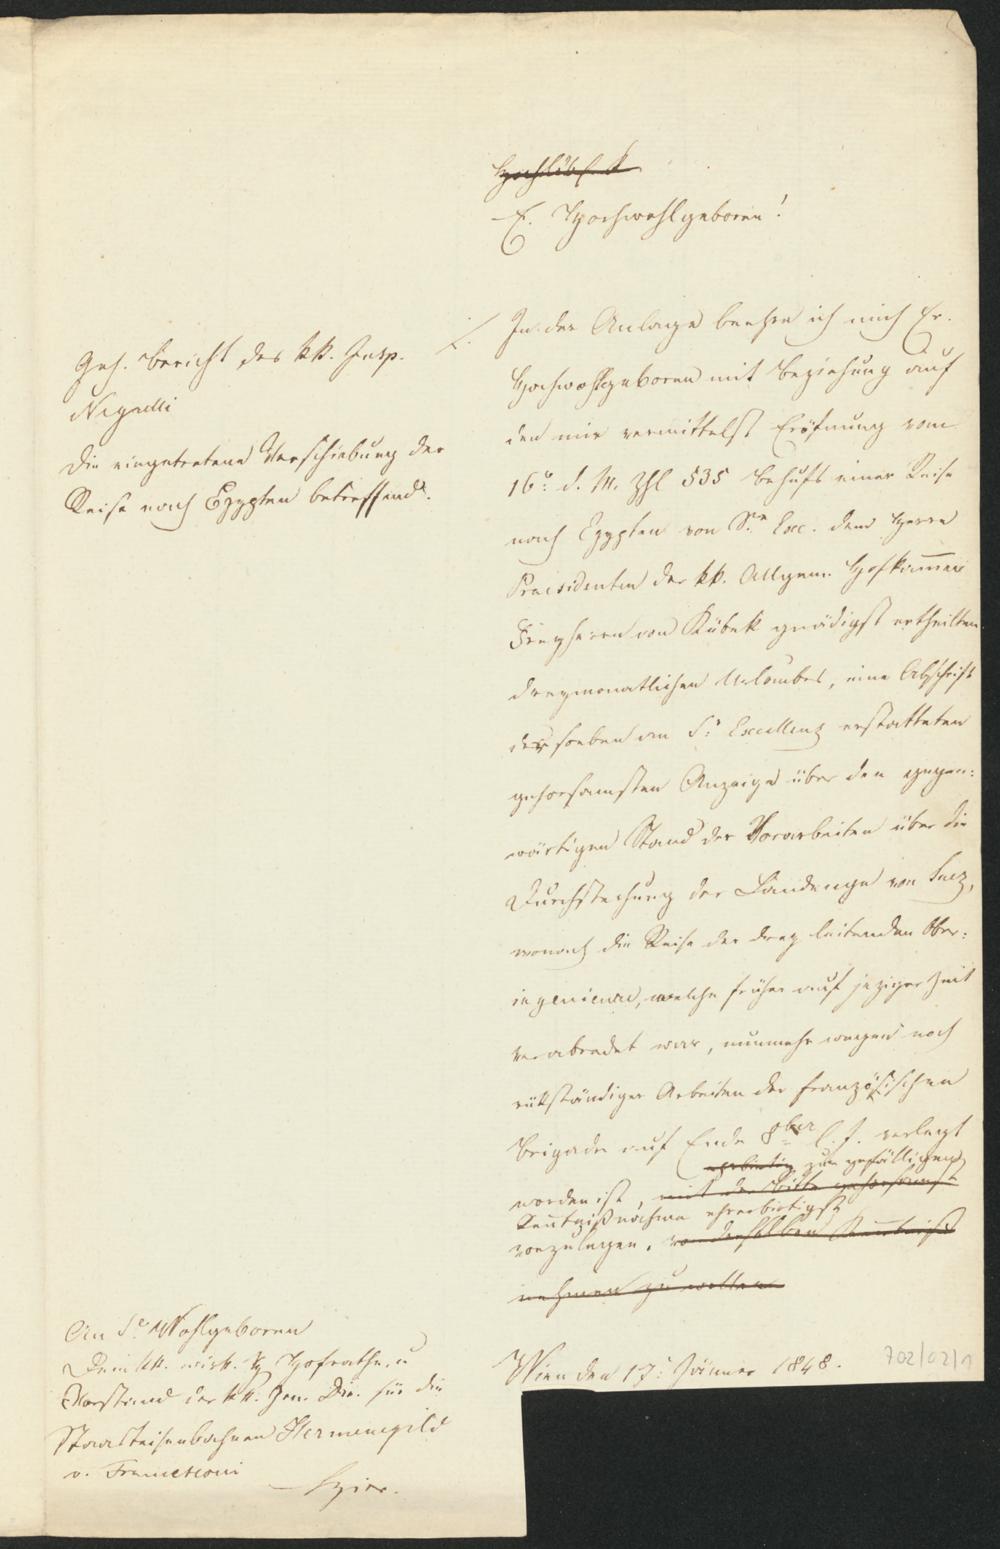 E. Hochwohlgeboren!
Geh. Bericht des kk. Insp.
Negrelli
die eingetretene Verschiebung der
Reise nach Egypten betreffend.
In der Anlage beehre ich mich Er.
Hochwohlgeboren mit Beziehung auf
den mir vermittelst Eröfnung vom
16. d. M. Zhl 535 behufs einer Reise
nach Egypten von Sr. Exc. dem Herrn
Praesidenten der kk. Allgem. Hofkammer
Freyherrn von Kübek gnädigst ertheilten
dreymonatlichen Urlaubes, eine Abschrift
der soeben an Sr. Excellenz erstatteten
gehorsamsten Anzeige über den gegen:
wärtigen Stand der Vorarbeiten über die
Durchstechung der Landenge von Suez,
wonach die Reise der drey leitenden Ober:
ingenieure, welche früher auf jeziger Zeit
verabredet war, nunmehr wegen noch
rükständiger Arbeiten der französischen
Brigade auf Ende 8ber l. J. verlegt
ehrerbietig zur gefälligen
worden ist, mit der Bitte gehorsamst
Kenntnißnahme ehrerbietigst
vorzulegen, von derselben Kenntniß
nehmen zu wollen
Wien den 17. Jänner 1848.
702/02/1
An Sr Wohlgeboren
Dem kk. wirk. Hofrathe u
Vorstand der kk. Gen. Dir. für die
Staatseisenbahnen Hermenegild
v. Francesconi
hier.